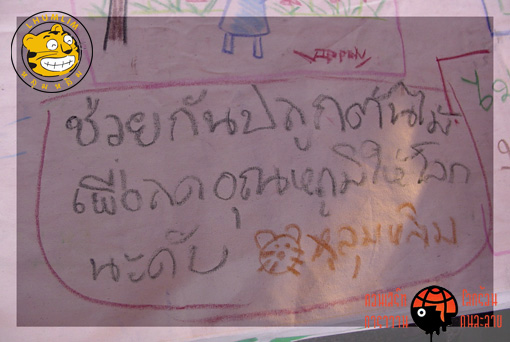 LHUMLIM
หลุมหลิม
ช่วยกันปลูกต้นไม้
เพื่อลดอุณหภูมิให้โลก
นะคับ หลุมหลิม